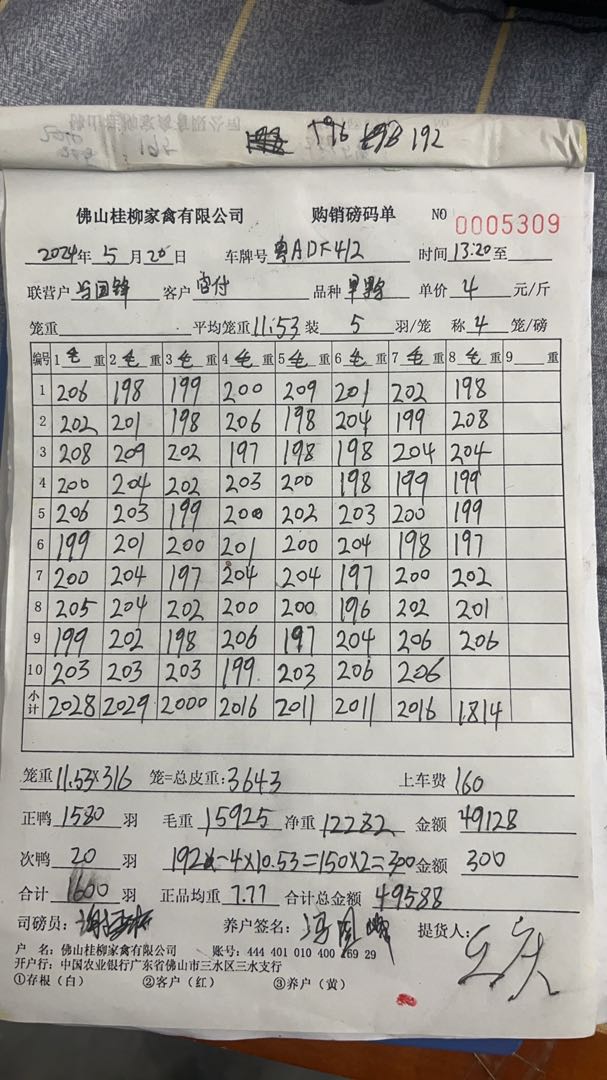 196 192
佛山桂柳家禽有限公司 购销磅码单 NO 0005309
2024年 5 月 20 日 车牌号 粤ADF412 时间 13:20 至
联营户 客户 品种 单价 4 元/斤
笼重 平均笼重 11.53 装 5 羽/笼 称 4 笼/磅
编号 1 毛 重 2 毛 重 3 毛 重 4 毛 重 5 毛 重 6 毛 重 7 毛 重 8 毛 重 9 重
1 206 198 199 200 209 201 202 198
2 202 201 198 206 198 204 199 208
3 208 209 202 197 198 198 204 204
4 200 204 202 203 200 198 199 199
5 206 203 199 200 202 203 200 199
6 199 201 200 201 200 204 198 197
7 200 204 197 204 204 197 200 202
8 205 204 202 200 200 196 202 201
9 199 202 198 206 197 204 206 206
10 203 203 203 199 203 206 206
小计 2028 2029 2000 2016 2011 2011 2016 1814
笼重 11.53×316 笼=总皮重: 3643 上车费 160
正鸭 1580 羽 毛重 15925 净重 12282 金额 49128
次鸭 20 羽 192 -4×10.53=150×2=300 金额 300
合计 1600 羽 正品均重 7.77 合计总金额 49588
司磅员: 养户签名: 提货人:
户 名: 佛山桂柳家禽有限公司 账号: 444 401 010 400 169 29
开户行: 中国农业银行广东省佛山市三水区三水支行
①存根(白) ②客户(红) ③养户(黄)